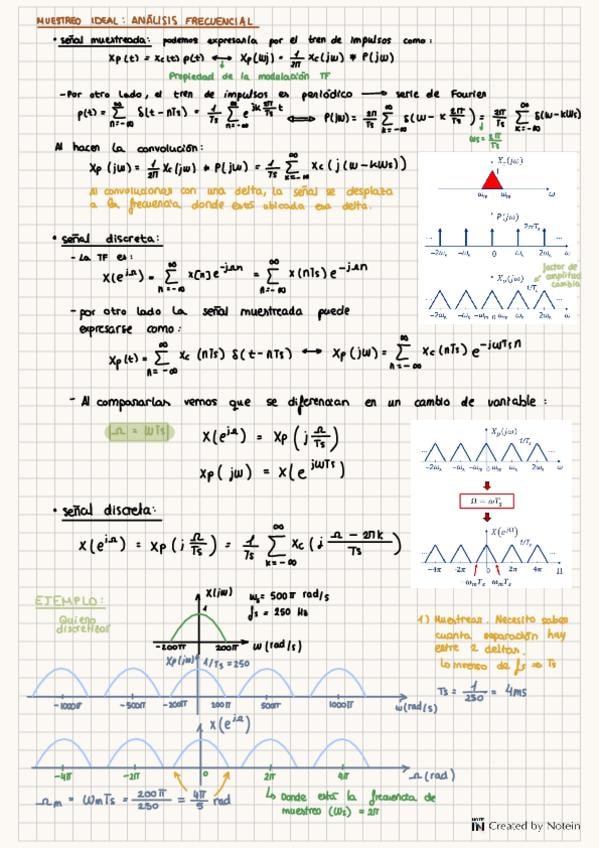 MUESTREO IDEAL: ANÁLISIS FRECUENCIAL
• señal muestreada: podemos expresarla por el tren de impulsos como:
xp(t) = xc(t) p(t) ⟷ Xp(wj) = 1/2π Xc(jw) * P(jw)
Propiedad de la modulación TF
- Por otro lado, el tren de impulsos es periódico → serie de Fourier
p(t) = ∑_{n=-∞}^{∞} δ(t-nTs) = 1/Ts ∑_{n=-∞}^{∞} e^{jk 2π/Ts t} ⟺ P(jw) = 2π/Ts ∑_{k=-∞}^{∞} δ(w - k 2π/Ts) = 2π/Ts ∑_{k=-∞}^{∞} δ(w-kws)
ws = 2π/Ts
Al hacer la convolución:
Xp(jw) = 1/2π Xc(jw) * P(jw) = 1/Ts ∑_{k=-∞}^{∞} Xc(j(w-kws))
Al convolucionar con una delta, la señal se desplaza
a la frecuencia donde está ubicada esa delta.
Xc(jω)
1
-ωm ωm ω
P(jω)
2π/Ts
... ...
-2ωs -ωs 0 ωs 2ωs ω
factor de
amplitud
cambia
Xp(jω)
1/Ts
... ...
-2ωs -ωs -ωm 0 ωm ωs 2ωs ω
• señal discreta:
- La TF es:
X(e^{jΩ}) = ∑_{n=-∞}^{∞} x[n] e^{-jΩn} = ∑_{n=-∞}^{∞} x(nTs) e^{-jΩn}
- por otro lado la señal muestreada puede
expresarse como:
xp(t) = ∑_{n=-∞}^{∞} xc(nTs) δ(t-nTs) ⟷ Xp(jw) = ∑_{n=-∞}^{∞} xc(nTs) e^{-jwTsn}
- Al compararlas vemos que se diferencian en un cambio de variable:
Ω = wTs
X(e^{jΩ}) = Xp(j Ω/Ts)
Xp(jw) = X(e^{jwTs})
Xp(jω)
1/Ts
... ...
-2ωs -ωs 0 ωs 2ωs ω
Ω = ωTs
X(e^{jΩ})
1/Ts
... ...
-4π -2π 0 2π 4π Ω
-ωmTs ωmTs
• señal discreta:
X(e^{jΩ}) = Xp(j Ω/Ts) = 1/Ts ∑_{k=-∞}^{∞} Xc(j (Ω-2πk)/Ts)
EJEMPLO:
Quiero
discretizar
X(jw)
1
-200π 200π w(rad/s)
ws = 500π rad/s
fs = 250 Hz
1) Muestrear. Necesito saber
cuanta separación hay
entre 2 deltas.
Lo inverso de fs ⇒ Ts
Ts = 1/250 = 4ms
Xp(jw) 1/Ts = 250
-1000π -500π -200π 200π 500π 1000π w(rad/s)
X(e^{jΩ})
-4π -2π 0 2π 4π Ω(rad)
Ωm = wmTs = 200π/250 = 4π/5 rad
↳ Donde está la frecuencia de
muestreo (ws) = 2π
Created by Notein